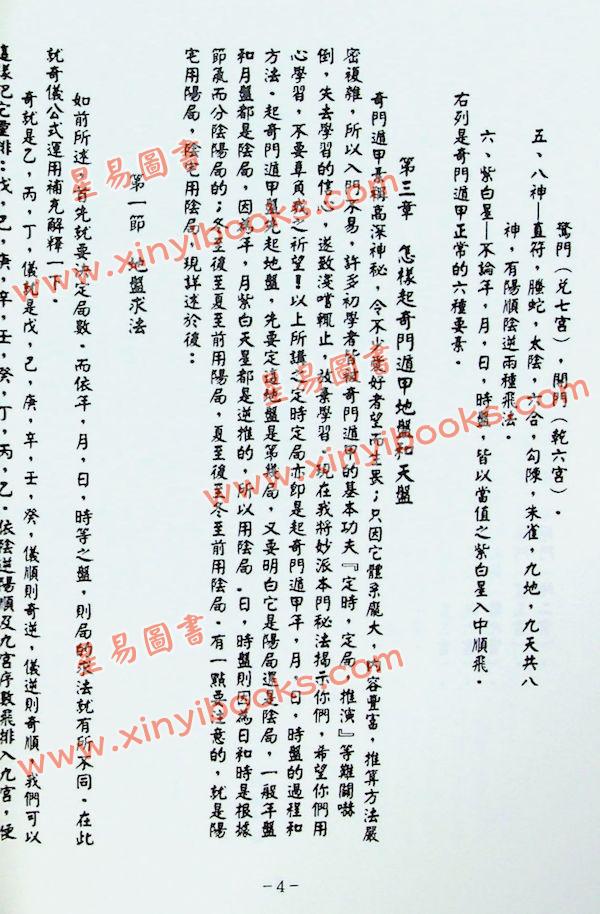 驚門（兌七宮），開門（乾六宮）。
五、八神—直符，螣蛇，太陰，六合，勾陳，朱雀，九地，九天共八
神，有陽順陰逆兩種飛法。
六、紫白星—不論年，月，日，時盤，皆以當值之紫白星入中順飛。
右列是奇門遁甲正常的六種要素。
第三章　怎樣起奇門遁甲地盤和天盤
奇門遁甲素稱高深神秘，令不少愛好者望而生畏；只因它體系龐大，內容豐富，推算方法嚴
密複雜，所以入門不易，許多初學者皆被奇門遁甲的基本功夫『定時，定局，推演』等難關嚇
倒，失去學習的信心，遂致淺嚐輒止，放棄學習，現在我將妙派本門秘法揭示你們，希望你們用
心學習，不要辜負我之祈望！以上所講之定時定局亦即是起奇門遁甲年，月，日，時盤的過程和
方法。起奇門遁甲盤先起地盤，先要定這地盤是第幾局，又要明白它是陽局還是陰局，一般年盤
和月盤都是陰局，因為年，月紫白天星都是逆推的，所以用陰局。日，時盤則因為日和時是根據
節氣而分陰陽局的；冬至後至夏至前用陽局，夏至後至冬至前用陰局。有一點要注意的，就是陽
宅用陽局，陰宅用陰局，現詳述於後：
第一節　地盤求法
如前所述，首先就要決定局數。而依年，月，日，時等之盤，則局的求法就有所不同。在此
就奇儀公式運用補充解釋一下。
奇就是乙，丙，丁，儀就是戊，己，庚，辛，壬，癸，儀順則奇逆，儀逆則奇順，我們可以
這樣記它靈排：戊，己，庚，辛，壬，癸，丁，丙，乙。依陰逆陽順及九宮序數飛排入九宮，便
-4-
星易圖書
www.xinyibooks.com
星易圖書
www.xinyibooks.com
星易圖書
www.xinyibooks.com